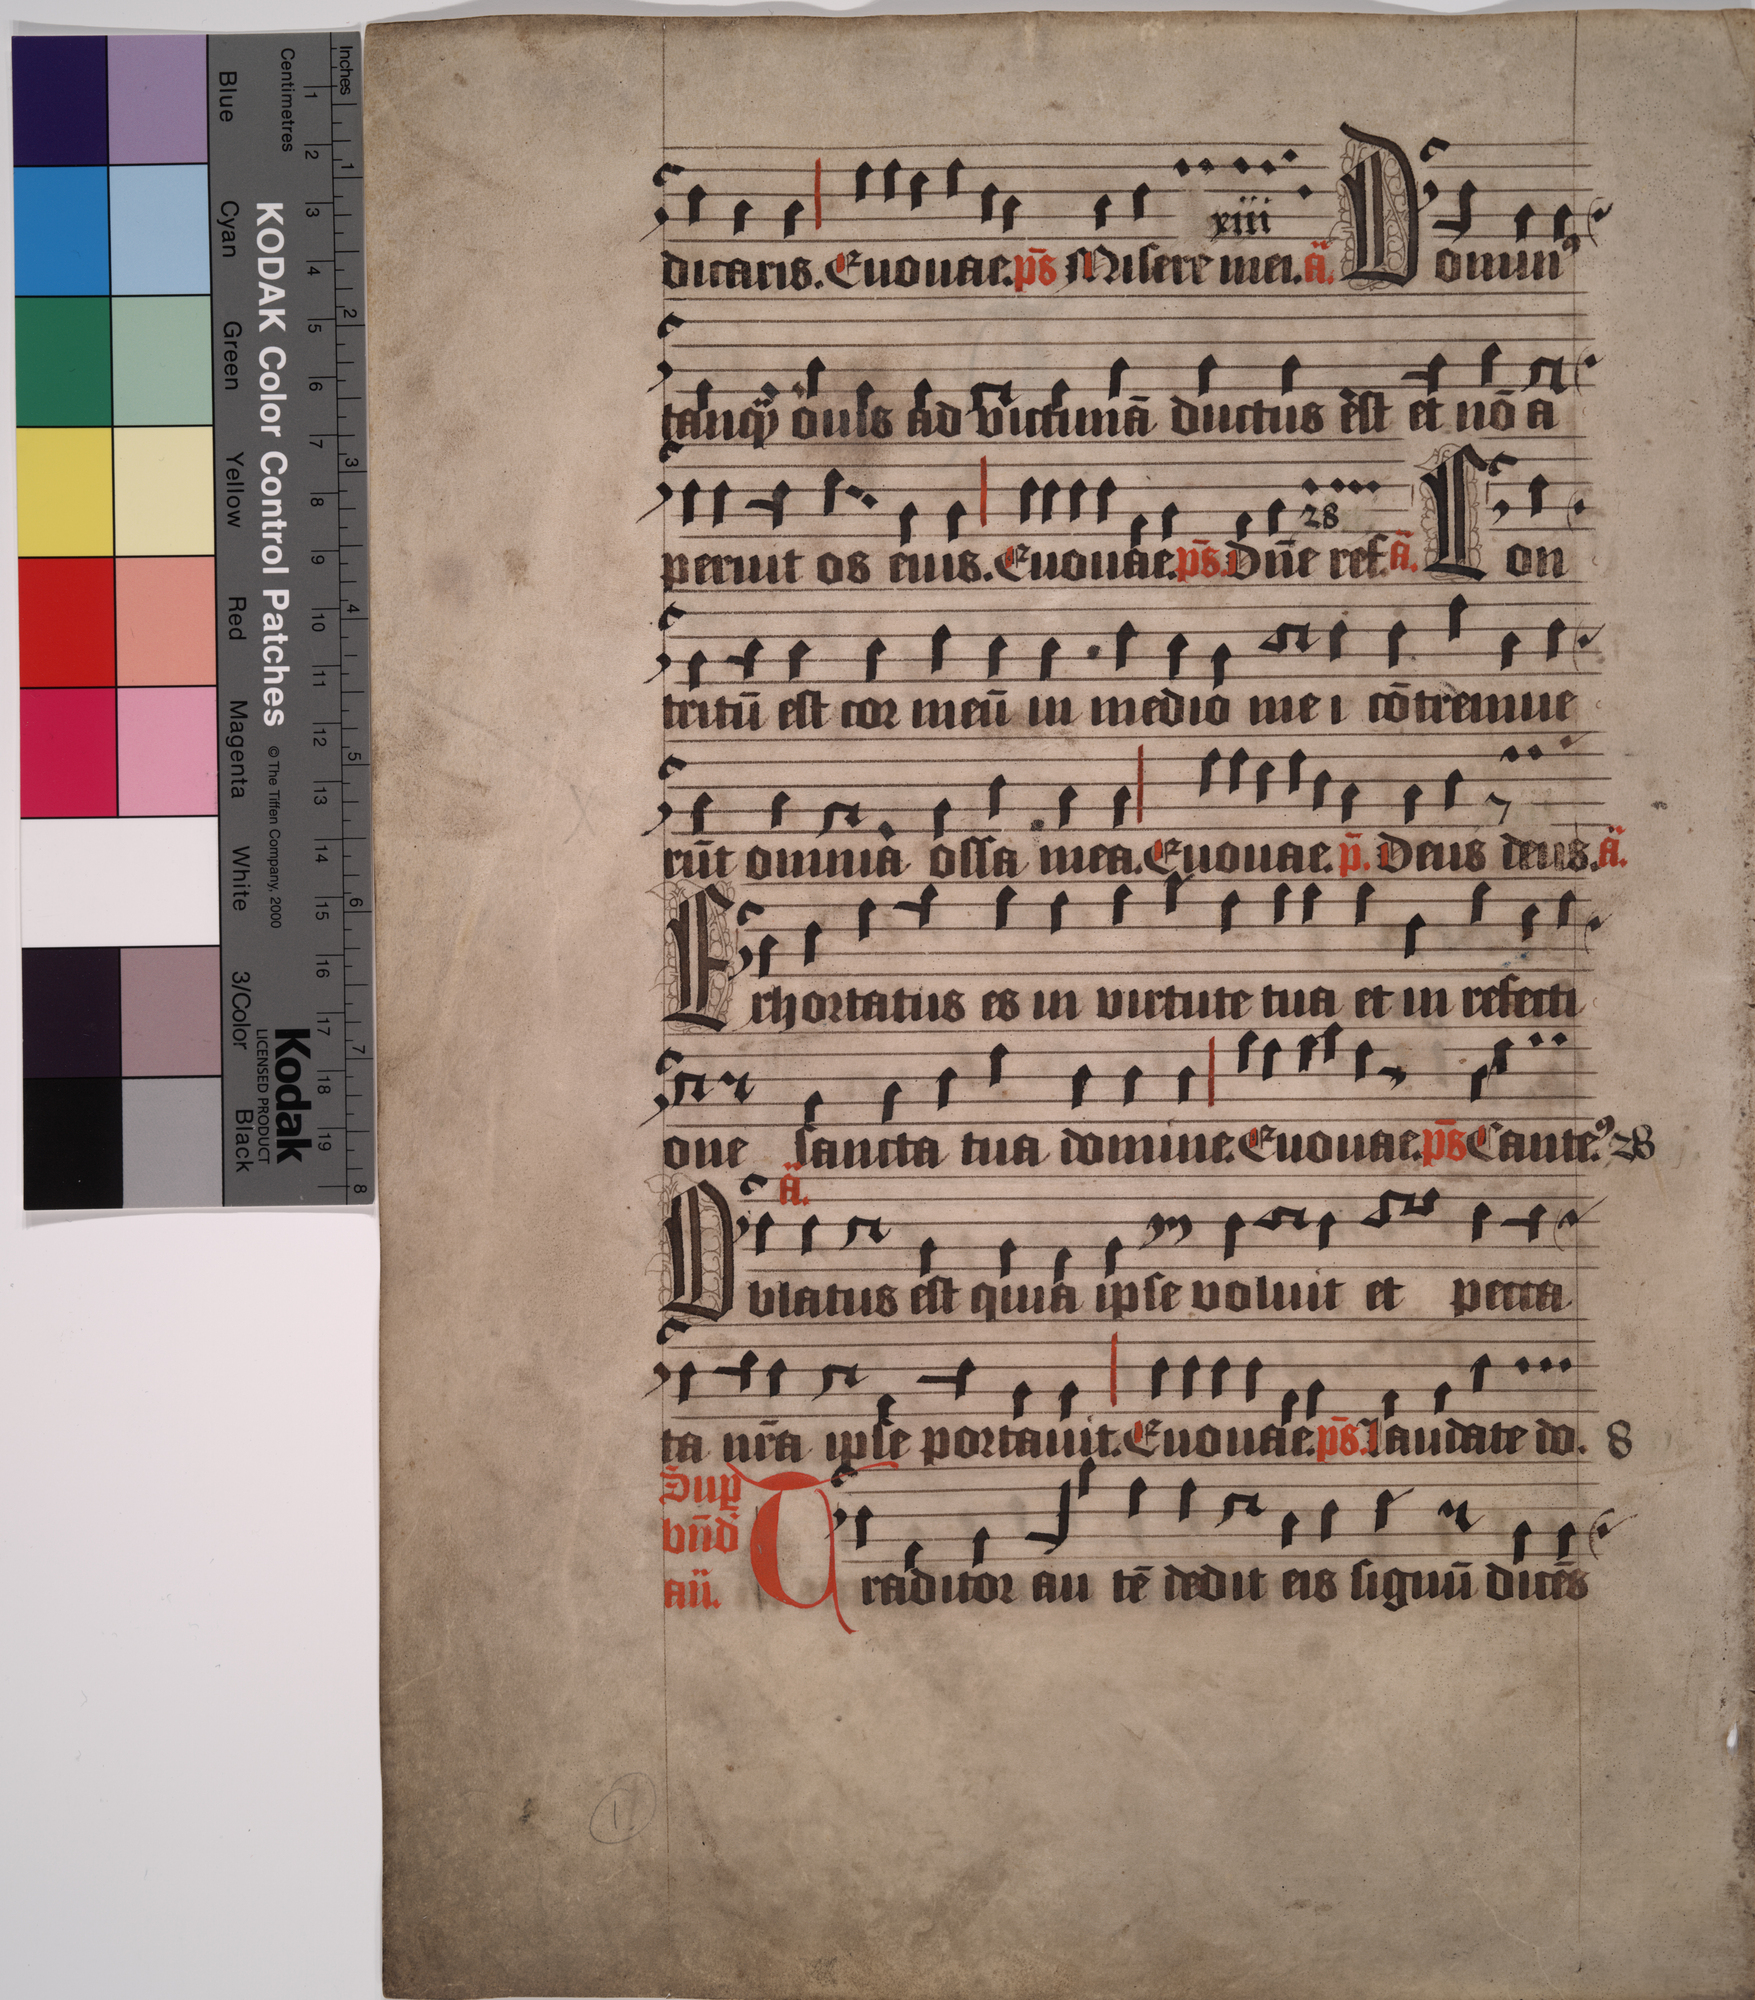 Inches
Centimetres
1 2 3 4 5 6 7 8 9 10 11 12 13 14 15 16 17 18 19
1 2 3 4 5 6 7 8
Blue Cyan Green Yellow Red Magenta White 3/Color Black
KODAK Color Control Patches © The Tiffen Company, 2000
Kodak
LICENSED PRODUCT
xiii
dicaris. Euouae. ps̄ Misere mei. a̅. Domin⁹
tanqȝ ouis ad victimā ductus est et nō a
28
peruit os eius. Euouae. ps̄. Dn̄e ref. ā. Con
tritū est cor meū in medio mei cōtremue
rūt omnia ossa mea. Euouae. p̄. Deus deus. ā.
Exhortatus es in virtute tua et in refecti
one sancta tua domine. Euouae. ps̄ Cante⁹. 28
ā.
Oblatus est quia ipse voluit et pecca
ta nr̄a ipse portauit. Euouae. ps̄. Laudate do. 8
Sup
bn̄d
an̄.
Traditor autē dedit eis signū dicēs
1